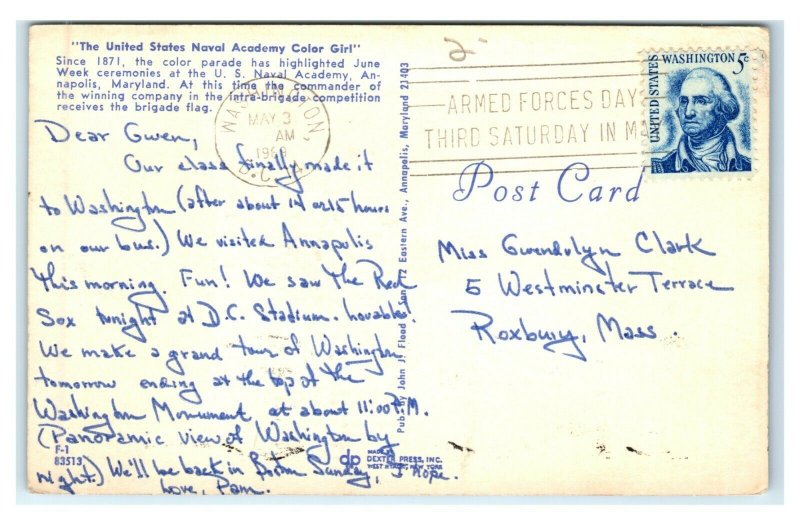 "The United States Naval Academy Color Girl"
Since 1871, the color parade has highlighted June
Week ceremonies at the U. S. Naval Academy, An-
napolis, Maryland. At this time the commander of
the winning company in the intra-brigade competition
receives the brigade flag.
Dear Gwen,
Our class finally made it
to Washington (after about 14 or 15 hours
on our bus.) We visited Annapolis
this morning. Fun! We saw the Red
Sox tonight at D.C. Stadium.
We make a grand tour of Washington
tomorrow ending at the top of the
Washington Monument at about 11:00 P.M.
(Panoramic view of Washington by
night.) We'll be back in Boston Sunday, I hope.
Love, Pam.
F-1
83513
Pub. by John J. Flood & Son, 72 Eastern Ave., Annapolis, Maryland 21403
dp
MADE BY
DEXTER PRESS, INC.
WEST NYACK, NEW YORK
WASHINGTON,
MAY 3
AM
D.C.
2
ARMED FORCES DAY
THIRD SATURDAY IN MA
UNITED STATES
WASHINGTON 5c
Post Card
Miss Gwendolyn Clark
5 Westminster Terrace
Roxbury, Mass.